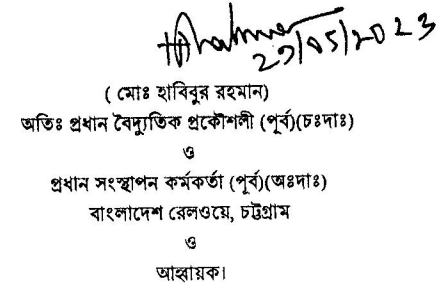 29/05/2023
( মোঃ হাবিবুর রহমান)
অতিঃ প্রধান বৈদ্যুতিক প্রকৌশলী (পূর্ব)(চঃদাঃ)
ও
প্রধান সংস্থাপন কর্মকর্তা (পূর্ব)(অঃদাঃ)
বাংলাদেশ রেলওয়ে, চট্টগ্রাম
ও
আহ্বায়ক।